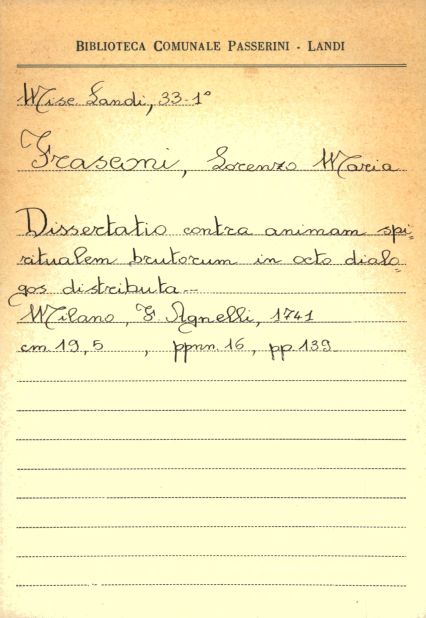 BIBLIOTECA COMUNALE PASSERINI - LANDI
Misc. Landi, 33-1°
Frasconi, Lorenzo Maria
Dissertatio contra animam spi-
ritualem brutorum in octo dialo-
gos distributa.-
Milano, F. Agnelli, 1741
cm. 19,5 , ppnn. 16, pp. 139